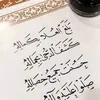 بلغ العلا بكماله
كشف الدجى بجماله
حسنت جميع خصاله
صلوا عليه وآله